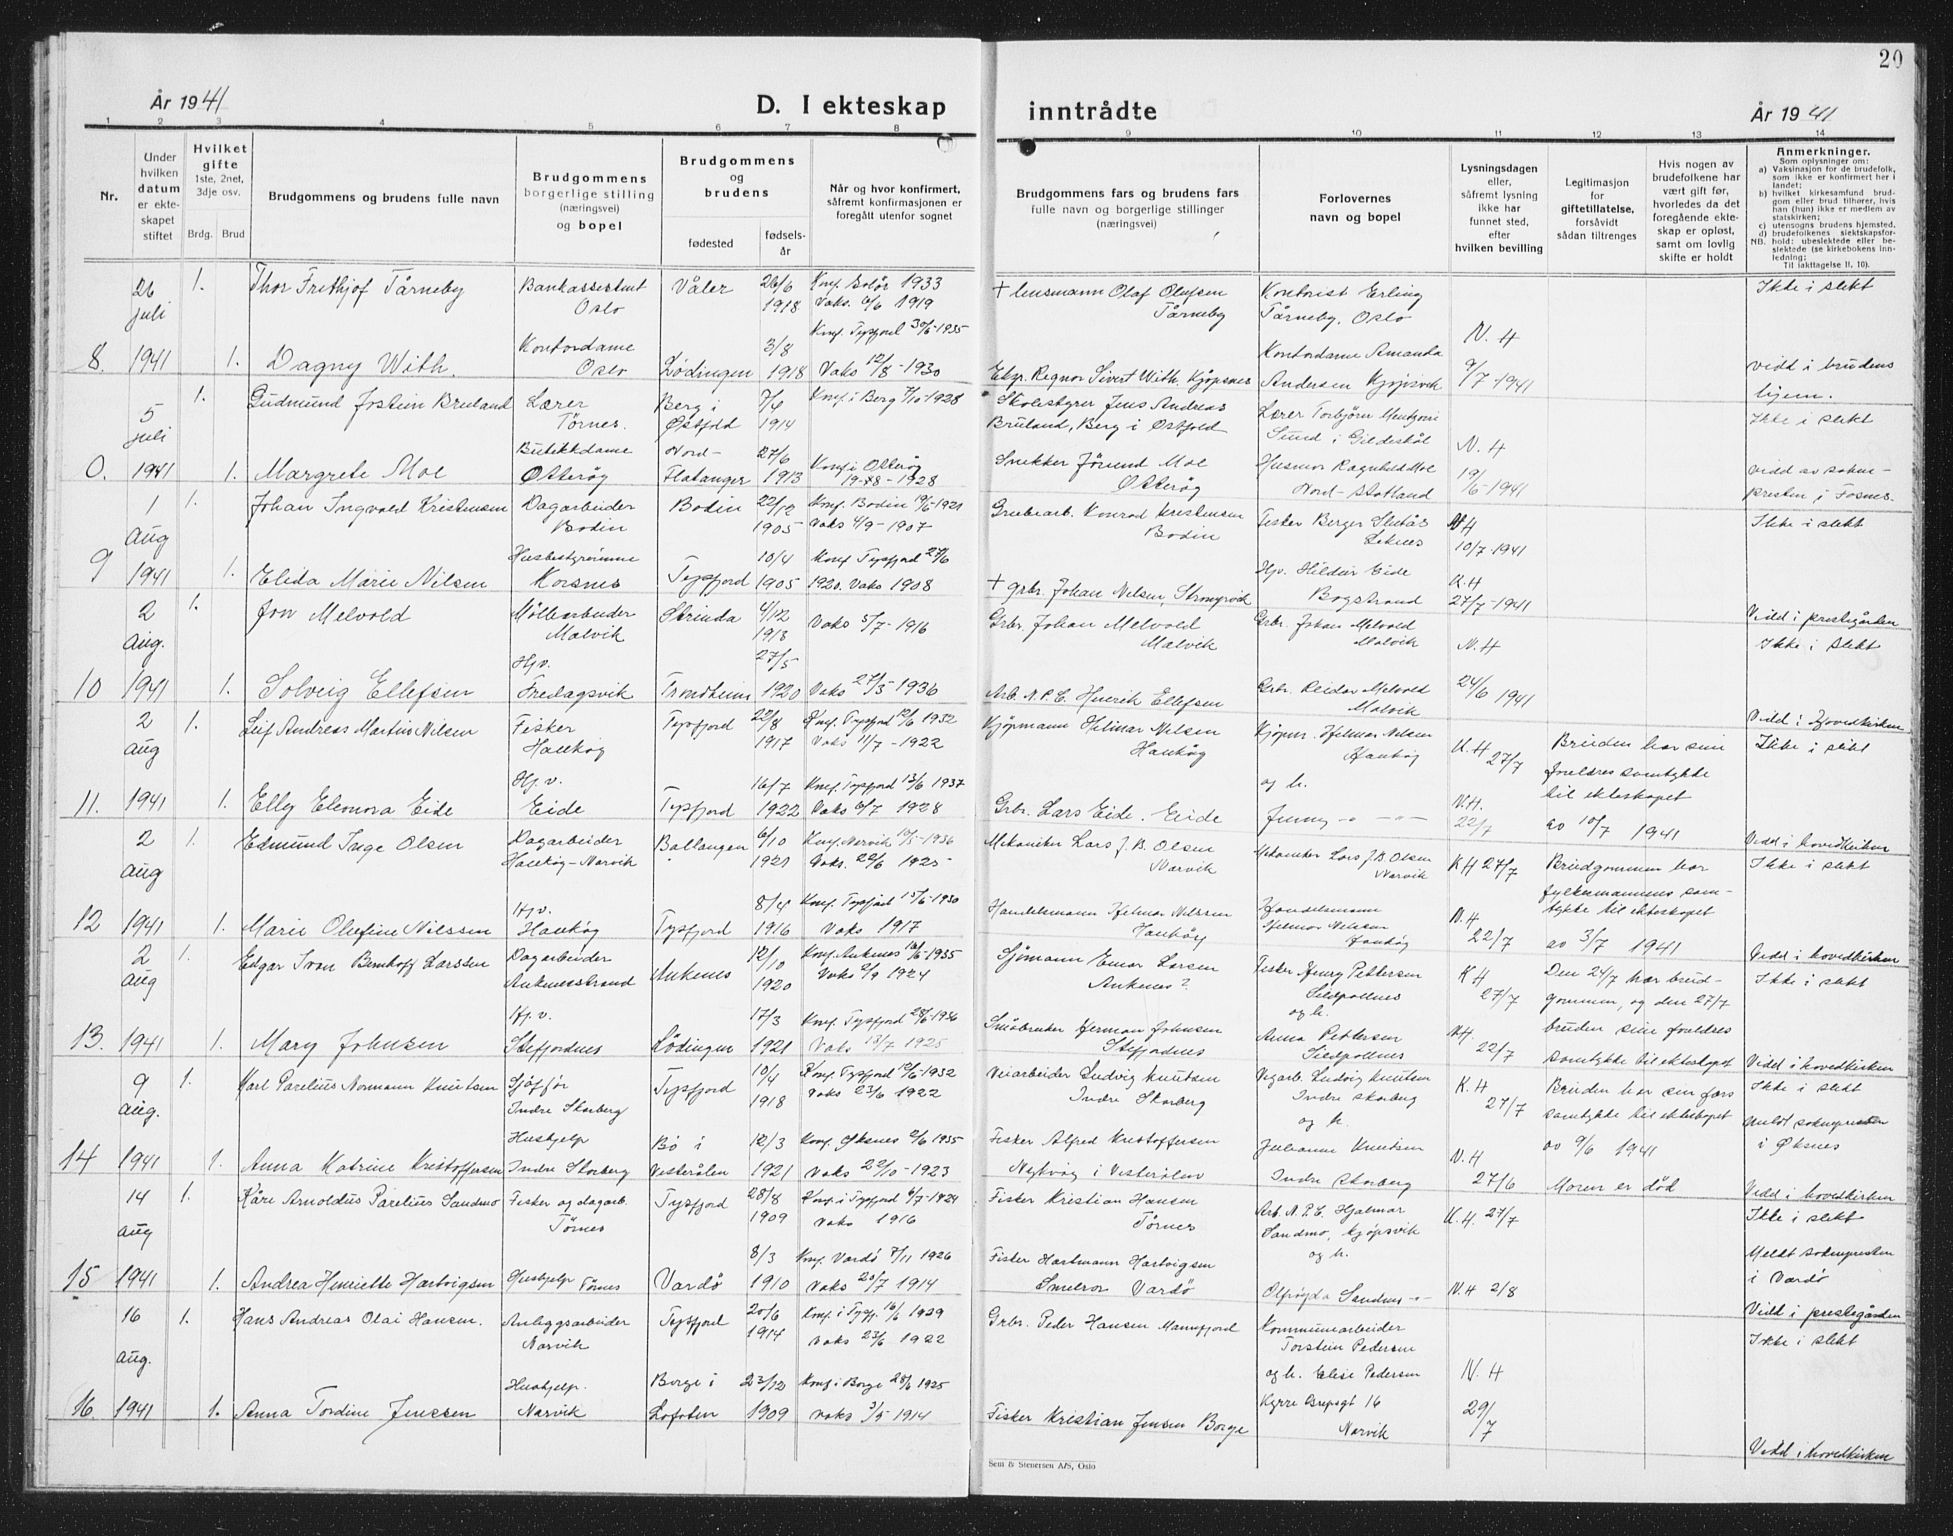 20
År 1941
D. I ekteskap
inntrådte
År 1941
1 2 3 4 5 6 7 8 9 10 11 12 13 14
Nr.
Under
hvilken
datum
er ekte-
skapet
stiftet
Hvilket
gifte
1ste, 2net,
3dje osv.
Brdg. Brud
Brudgommens og brudens fulle navn
Brudgommens
borgerlige stilling
(næringsvei)
og bopel
Brudgommens
og
brudens
fødested
fødsels-
år
Når og hvor konfirmert,
såfremt konfirmasjonen er
foregått utenfor sognet
Brudgommens fars og brudens fars
fulle navn og borgerlige stillinger
(næringsvei)
Forlovernes
navn og bopel
Lysningsdagen
eller,
såfremt lysning
ikke har
funnet sted,
efter
hvilken bevilling
Legitimasjon
for
giftetillatelse,
forsåvidt
sådan tiltrenges
Hvis nogen av
brudefolkene har
vært gift før,
hvorledes da det
foregående ekte-
skap er opløst,
samt om lovlig
skifte er holdt
Anmerkninger.
Som oplysninger om:
a) Vaksinasjon for de brudefolk,
som ikke er konfirmert her i
landet;
b) hvilket kirkesamfund brud-
gom eller brud tilhører, hvis
han (hun) ikke er medlem av
statskirken;
c) utensogns brudens hjemsted.
d) brudefolkenes slektskapsfor-
NB. hold: ubeslektede eller be-
slektede (se kirkebokens inn-
ledning;
Til iakttagelse II, 10).
26 juli 1. Thor Frithjof Tårneby Bankassistent Oslo Våler 26/6 1918 Konf. Solør 1933 Vaks. 6/6 1919 + lensmann Olaf Olufsen Tårneby Kontorist Erling Tårneby, Oslo N. H Ikke i slekt
8. 1941 1. Dagny With. Kontordame Oslo Lødingen 3/8 1918 Konf. Tysfjord 30/6-1935 Vaks 12/8-1930 Eksp. Regnor Sivert With. Kjøpsnes Kontordame Amanda Andersen Kjøpsvik 9/7-1941 vidd i brudens hjem.
5 juli 1. Gudmund Jostein Bruland Lærer Tørnes. Berg i Østfold 7/4 1914 Konf. i Berg 7/10-1928 Skolestyrer Jens Andreas Bruland, Berg i Østfold Lærer Torbjørn Sund i Gildeskål N. H Ikke i slekt
0. 1941 1. Margrete Moe Butikkdame Otterøy Nord-Flatanger 27/6 1913 Konf i Otterøy 1928 Snekker Jørund Moe Otterøy Husmor Ragnhild Moe Nord-Statland 19/6-1941 vidd av sokne-presten i Fosnes.
1 Aug 1. Johan Ingvald Kristensen Dagarbeider Bodin Bodin 22/12 1905 Konf. Bodin 19/6-1921 Vaks 4/9-1907 Grubearb. Konrad Kristensen Bodin Fisker Berger Leknes N H 10/7-1941 Ikke i slekt
9 1941 1. Elida Marie Nilsen Husbestyrerinne Korsnes Tysfjord 10/4 1905 Konf Tysfjord 27/6 1920. Vaks 1908 + grbr. Johan Nilsen, Hjv. Hildur Eide Bogstrand K. H 27/7-1941 Vidd i prestegården
2 aug. 1. Jon Melvold Møllearbeider Malvik Strinda 4/12 1913 Vaks 5/7-1916 Grbr. Johan Melvold Malvik Grbr. Johan Melvold Malvik N. H Ikke i slekt
10 1941 1. Solveig Ellefsen Hjv. Fredagsvik Trondheim 27/5 1920 Vaks 27/5-1936 Arb. N.P.C. Henrik Ellefsen Grbr. Reidar Melvold Malvik 24/6 1941 Vidd i Hovedkirken
2 aug 1. Leif Andreas Martin Nilsen Fisker Haukøy Tysfjord 22/8 1917 Konf. Tysfjord 12/6 1932 Vaks 11/7-1922 Kjøpmann Hilmar Nilsen Haukøy Kjøpm. Hjelmar Nilsen Haukøy K. H 27/7 Bruden har sine foreldres samtykke Ikke i slekt
11. 1941 1. Elly Eleonora Eide Hj. v. Eide Tysfjord 16/7 1922 Konf. Tysfjord 13/6 1937 Vaks 6/7 1928 Grbr. Lars Eide. Eide og h. Jenny N. H. 22/7 til ekteskapet av 10/7 1941 Vidd i hovedkirken
2 aug 1. Edmund Inge Olsen Dagarbeider Haukøy-Narvik Ballangen 6/10 1921 Konf. Narvik 10/5-1936 Vaks. 22/6 1925 Mekaniker Lars J. B. Olsen Narvik Mekaniker Lars J. B. Olsen Narvik K H 27/7 Brudgommen har fylkesmannens sam- Ikke i slekt
12 1941 1. Marie Olufine Nilssen Hj. v. Haukøy Tysfjord 8/4 1916 Konf. Tysfjord 15/6-1930 Vaks 1917 Handelsmann Hjelmar Nilssen Haukøy Handelsmann Hjelmar Nilssen Haukøy N. H 22/7 tykke til ekteskapet av 3/7 1941 Vidd i hovedkirken
2 aug 1. Edgar Ivan Bernhoff Larssen Dagarbeider Ankenesstrand Ankenes 12/10 1920 Konf. Ankenes 16/6-1935 Vaks 2/9 1924 Sjømann Einar Larsen Ankenes? Fisker Henry Pettersen Sildpollnes og h. K H 27/7 Den 24/7 har brud-gommen, og den 27/7 Ikke i slekt
13. 1941 1. Mary Johnsen Hj. v. Stefjordnes Lødingen 17/3 1921 Konf. Tysfjord 28/6-1936 Vaks 18/7 1925 Småbruker Herman Johnsen Stefjordnes Anna Pettersen Sildpollnes N.H. 22/7 bruden sine foreldres samtykke til ekteskapet Vidd i hovedkirken
9 aug. 1. Karl Parelius Normann Knutsen Sjåfør Indre Skarberg Tysfjord 10/4 1918 Konf. Tysfjord 12/6-1932 Vaks 23/6 1922 Veiarbeider Ludvig Knutsen Indre Skarberg Vegarb. Ludvig Knutsen Indre Skarberg og h. K. H 27/7 Bruden har sin fars samtykke til ekteskapet Ikke i slekt Meldt soknepresten
14 1941 1. Anna Katrine Kristoffersen Hushjelp Indre Skarberg Bø i Vesterålen 12/3 1921 Konf. Øksnes 2/6 1935 Vaks 22/10-1923 Fisker Alfred Kristoffersen Nykvåg i Vesterålen Julianne Knutsen Indre Skarberg N. H 27/6 av 9/6 1941 Moren er død i Øksnes Vidd i hovedkirken
14 aug 1. Kåre Arnoldus Parelius Sandmo Fisker og dagarb. Tørnes Tysfjord 28/8 1909 Konf. i Tysfjord 6/7-1924 Vaks 1916 Fisker Kristian Hansen Tørnes Arb. N.P.C. Hjalmar Sandmo, Kjøpsvik og h. K. H. 27/7 Ikke i slekt
15 1941 1. Andrea Henriette Hartvigsen Hushjelp Tørnes Vardø 8/3 1910 Konf. Vardø 7/11 1926 Vaks 20/7 1914 Fisker Hartmann Hartvigsen Smelror Vardø Olfrøyda Sandmo N. H 2/8 Meldt soknepresten i Vardø Vidd i prestegården
16 aug. 1. Hans Andreas Olai Hansen. Anleggsarbeider Narvik Tysfjord 20/6 1914 Konf. i Tysfj. 16/6 1929 Vaks 23/6 1922 Grbr. Peder Hansen Mannfjord Kommunearbeider Torstein Pedersen og h. Elise Pedersen N. H Ikke i slekt
16. 1941 1. Anna Tordine Jenssen Hushjelp. Narvik Borge i Lofoten 23/12 1909 Konf i Borge 28/6 1925 Vaks 3/5 1914 Fisker Kristian Jensen Borge 16 Narvik 29/7 Vidd i hovedkirken
Sem & Stenersen A/S, Oslo